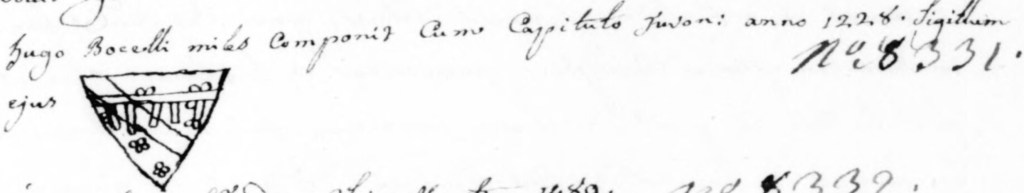 hugo Bocelli miles Componit Cum Capitulo Turon: anno 1228. Sigillum
ejus
No. 8331.
8332.